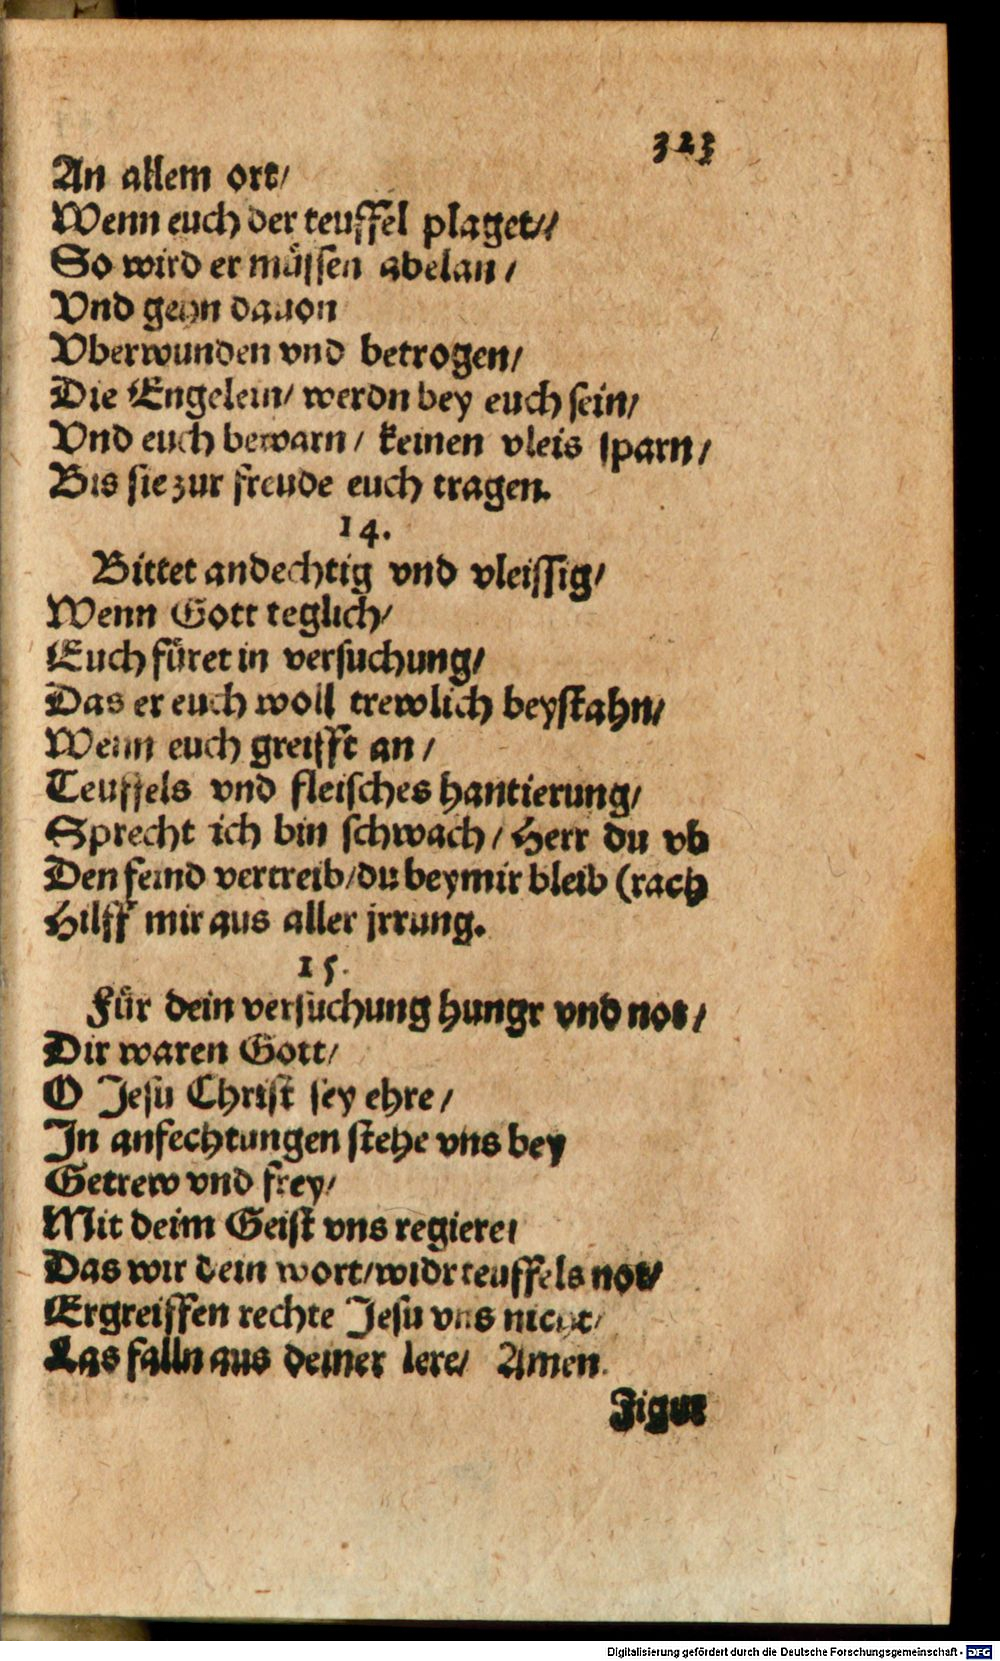 323
An allem ort/
Wenn euch der teuffel plaget//
So wird er müssen abelan /
Vnd gehn dauon
Vberwunden vnd betrogen/
Die Engelein/ werdn bey euch sein/
Vnd euch bewarn/ keinen vleis sparn/
Bis sie zur freude euch tragen.
14.
Bittet andechtig vnd vleissig/
Wenn Gott teglich/
Euch füret in versuchung/
Das er euch woll trewlich beystahn/
Wenn euch greifft an /
Teuffels vnd fleisches hantierung/
Sprecht ich bin schwach / Herr du vb
Den feind vertreib/du bey mir bleib (rach
Hilff mir aus aller jrrung.
15.
Für dein versuchung hungr vnd not/
Dir waren Gott/
O Jesu Christ sey ehre /
In anfechtungen stehe vns bey
Getrew vnd frey/
Mit deim Geist vns regiere/
Das wir dein wort/widr teuffels not/
Ergreiffen rechte Jesu vns nicht/
Las falln aus deiner lere/ Amen.
Figur
Digitalisierung gefördert durch die Deutsche Forschungsgemeinschaft - DFG